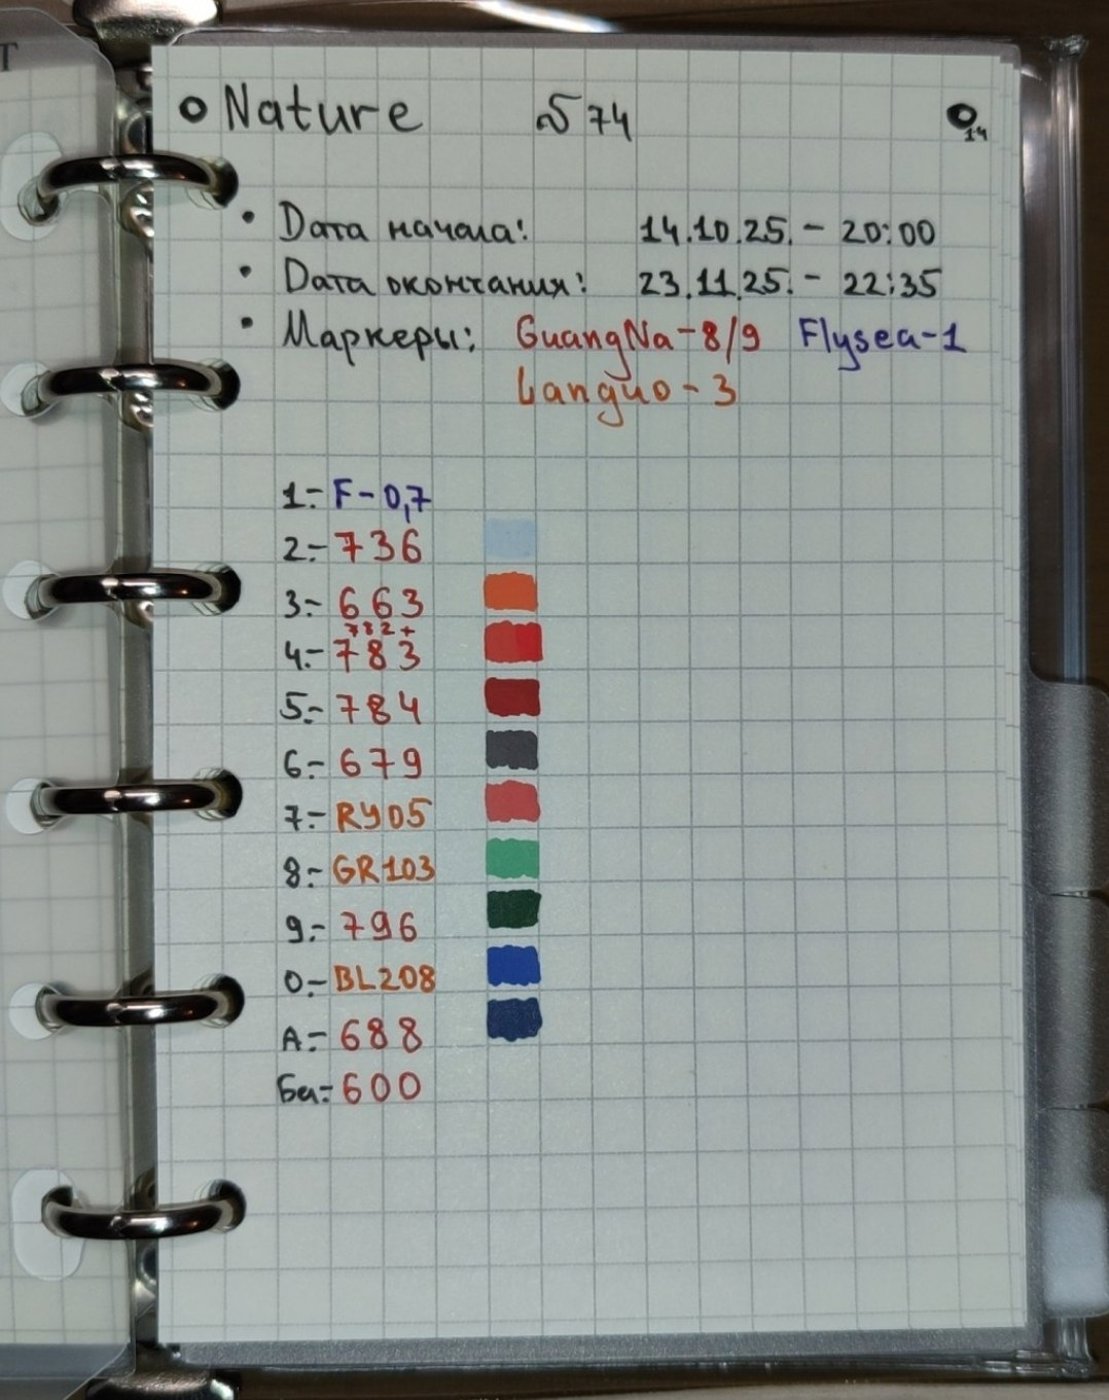 Nature № 74
14
Дата начала: 14.10.25. - 20:00
Дата окончания: 23.11.25. - 22:35
Маркеры: GuangNa-8/9 Flysea-1
Languo-3
1.- F-0,7
2.- 736
3.- 663
732+
4.- 783
5.- 784
6.- 679
7.- RY05
8.- GR103
9.- 796
0.- BL208
А.- 688
Ба.- 600